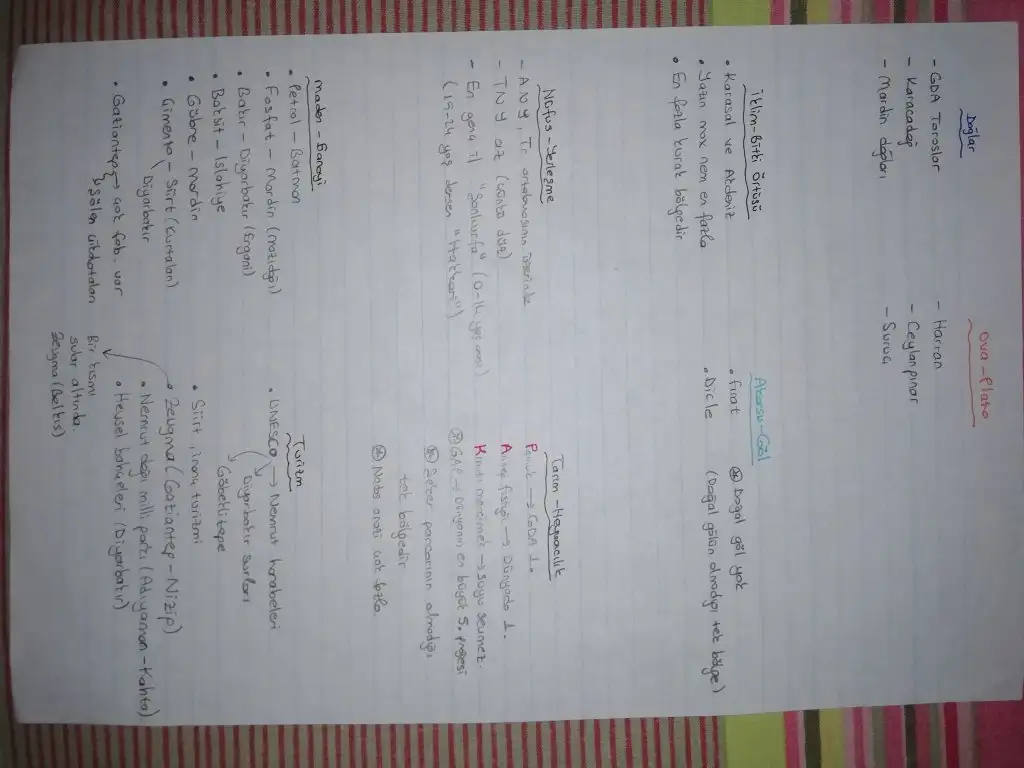 Dağlar
- GDA Toroslar
- Karacadağ
- Mardin dağları
Ova - Plato
- Harran
- Ceylanpınar
- Suruç
İklim - Bitki Örtüsü
• Karasal ve Akdeniz
• Yazın max nem en fazla
• En fazla kurak bölgedir
Akarsu - Göl
• Fırat
• Dicle
Doğal göl yok
(Doğal gölün olmadığı tek bölge)
Nüfus - Yerleşme
- ANY, Tr ortalamasının üzerinde
- TNY az
- En genç il "Şanlıurfa"
(19-24 yaş desen "Hakkari")
Tarım - Hayvancılık
Pamuk → GDA 1.
Antep fıstığı → Dünyada 1.
Kırmızı mercimek → suyu sevmez.
GAP → Dünyanın en büyük S. projesi
Şeker pancarının olmadığı
tek bölgedir
Nadas arazi çok fazla
Maden - Sanayi
• Petrol - Batman
• Fosfat - Mardin (Mazıdağı)
• Bakır - Diyarbakır (Ergani)
• Boksit - İslahiye
• Gübre - mardin
• Çimento - Siirt (Kurtalan)
Diyarbakır
• Gaziantep → çok fab. var
Turizm
• UNESCO → Nemrut harabeleri
→ Diyarbakır surları
→ Göbeklitepe
• Siirt, inanç turizmi
• Zeugma (Gaziantep - Nizip)
• Nemrut dağı milli parkı (Adıyaman - Kahta)
• Hevsel bahçeleri (Diyarbakır)
Bir kısmı
sular altında.
Zeugma (Belkıs)